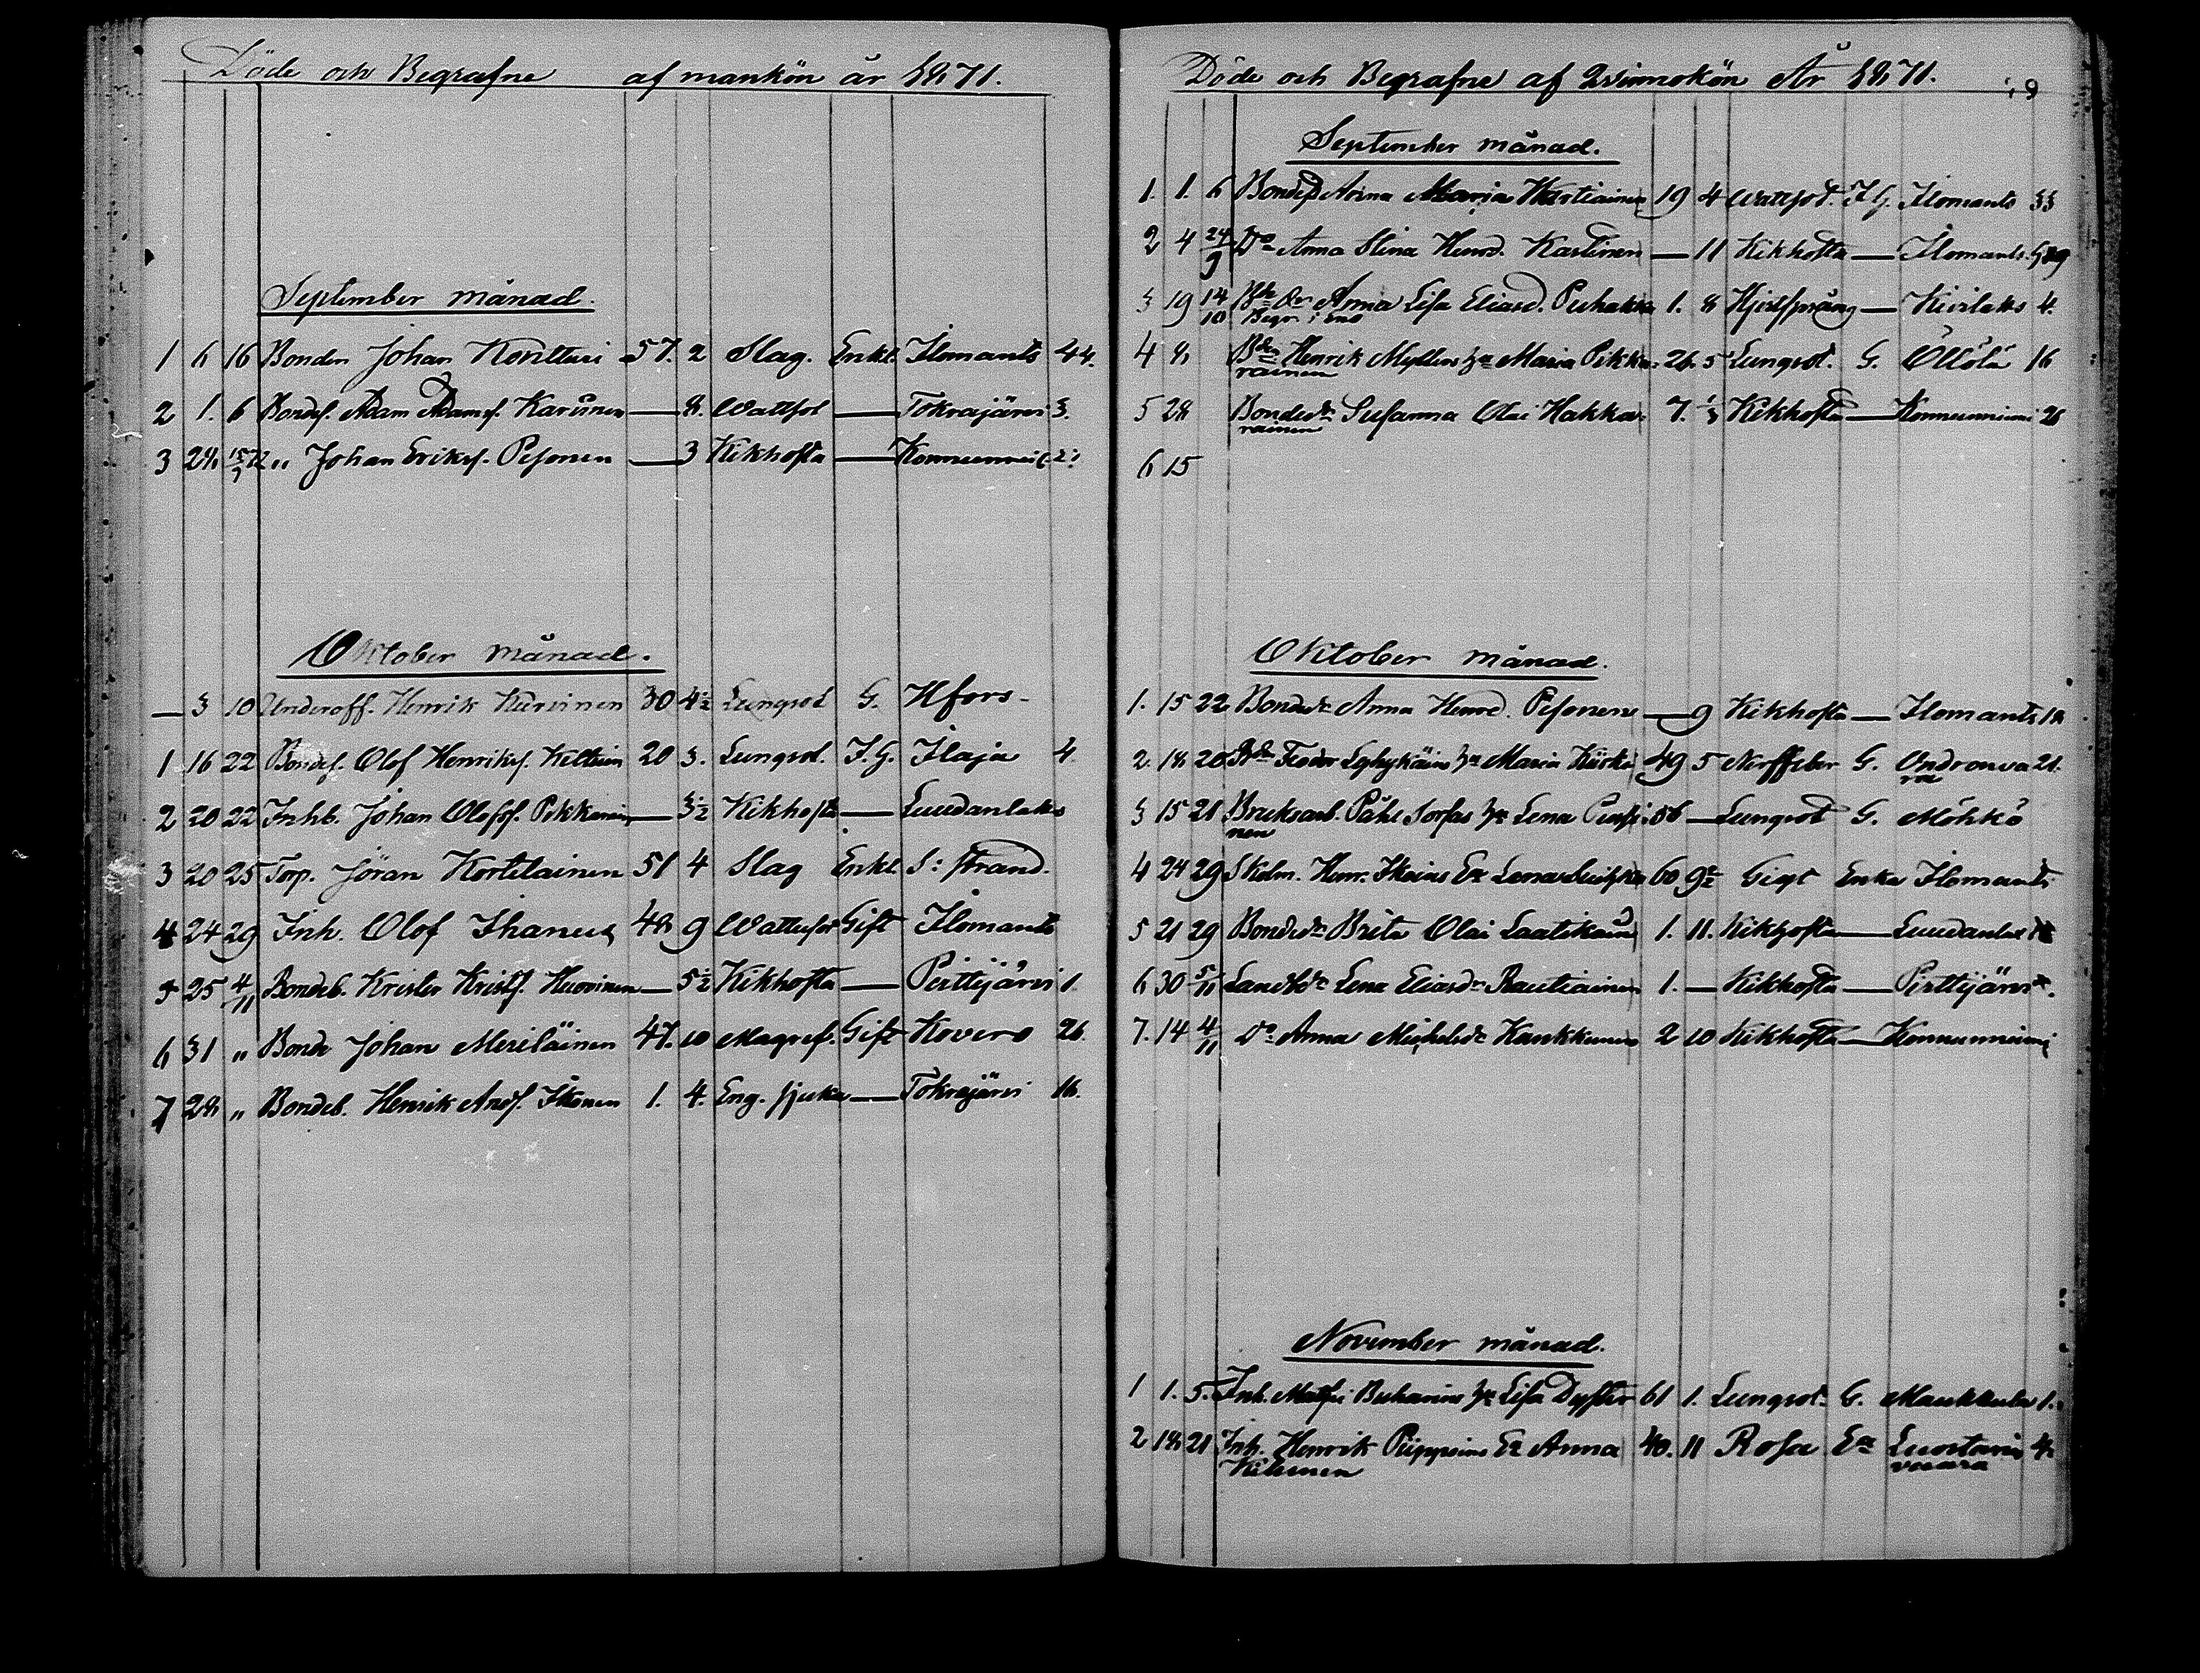 Döde och Begrafne af mankön år 1871.
September månad.
1 6 16 Bonden Johan Kontturi 57. 2 Slag. Enkl. Ilomants 44.
2 1. 6 Bondes. Adam Adamss. Karvinen — 8. Wattsot — Tokrajärvi 3.
3 28 „ Johan Erikss. Pesonen — 3 Kikhosta — Konnunniemi
Oktober månad.
— 3 10 Underoff. Henrik Kurvinen 30 4½ Lungsot G. Hfors-
1 16 22 Bondes. Olof Henrikss. 20 3. Lungsot. I.G. Ilaja 4
2 20 22 Inhb. Johan Olofss. Pikkarain — 3½ Kikhosta — Luudanlaks
3 20 25 Torp. Jöran Kortelainen 51 4 Slag Enkl. S: strand.
4 24 29 Inh. Olof Ihanus 48 9 Wattusot Gift Ilomants
5 25 4/11 Bondeb. Krister Kristss. Huovinen — 5½ Kikhosta — Perttijärvi 1.
6 31 „ Bonde Johan Meriläinen 47. 10 Magref. Gift Kovero 26.
7 28 „ Bondeb. Henrik Andss. Ikonen 1. 4. Eng. sjuka — Tokrajärvi 16.
Döde och Begrafne af Qvinnokön År 1871.
September månad.
1. 1. 6 Bonded. Anna Maria Hurtiainen 19 4 Wattsot. I.G. Ilomants 33
2 4 24/9 Do Anna Stina Henrd. Karttinen — 11 Kikhosta — Ilomants
3 19 14/10 Anna Lisa Eliasd. Puhakka 1. 8 Hjertsprång — Kivilaks 4.
Begr. i Eno
4 8 Henrik Myllers hu Maria Pikka- 26. 5 Lungsot. G. Öllölä 16
rainen
5 28 Bondedr Susanna Olai Hakka- 7. ⅓ Kikhosta — Konnunniemi 26
rainen
6 15
Oktober månad.
1. 15 22 Bondedr Anna Henrd. Pesonen — 9 Kikhosta — Ilomants 18
2. 18 20 Fedor hu Maria 49 5 Nerffeber G. Ondronva 21.
ra
3 15 21 Bruksarb. Påhl Sorsas hu Lena 56 — Lungsot G. Möhkö
nen
4 24 29 Skolm. Henr. Ea Lena 60 9½ Gigt Enka Ilomants
5 21 29 Bondedr Brita Olai Laatikain 1. 11. Kikhosta — Luudanlax
6 30 5/11 Landbdr Lena Eliasdr Rautiainen 1. — Kikhosta — Perttijärvi
7. 14 4/11 Do Anna Michelsdr Kankkunen 2 10 Kikhosta — Konnunniemi
November månad.
1 1. 5. Inh. Matts Buhanins hu Lisa Dyster 61 1. Lungsot. G. Maukkula 1.
2 18 21 Inh. Henrik Piipponens Ea Anna 40. 11 Rosa Ea Luontarin
vaara